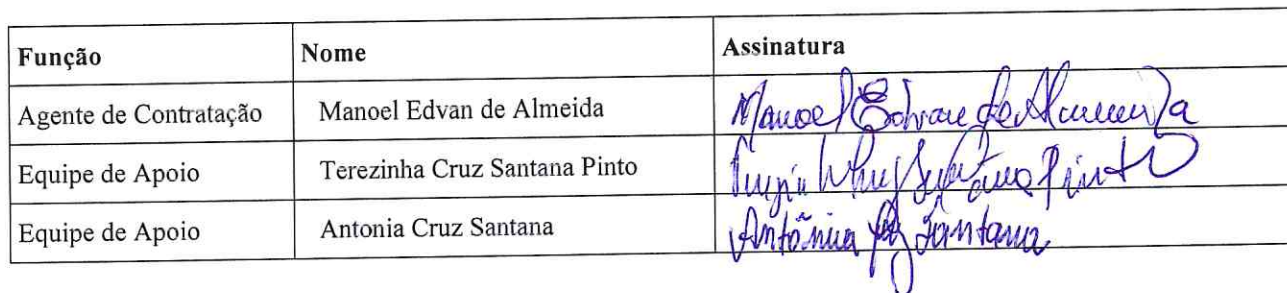 Função Nome Assinatura
Agente de Contratação Manoel Edvan de Almeida Manoel Edvan de Almeida
Equipe de Apoio Terezinha Cruz Santana Pinto Santana Pinto
Equipe de Apoio Antonia Cruz Santana Antônia Santana